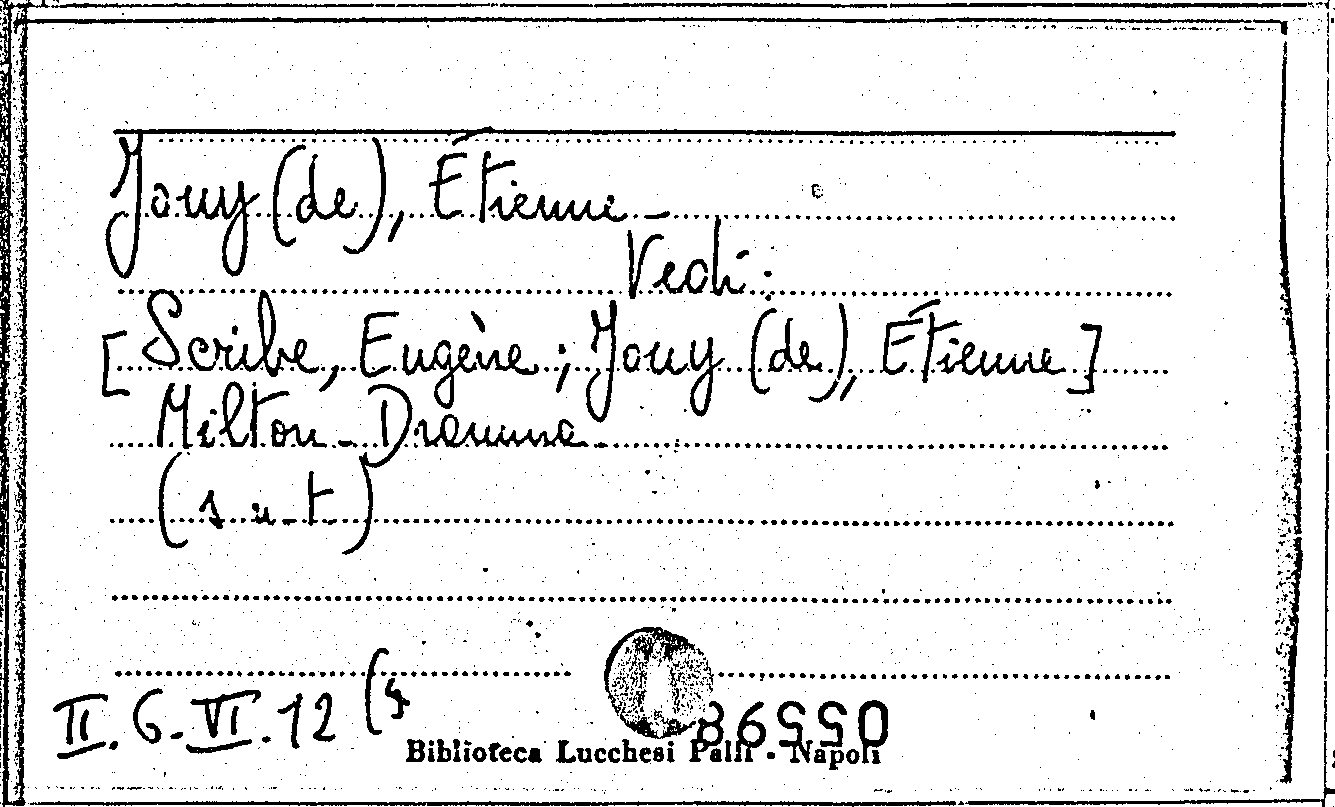 Jouy (de), Étienne -
Vedi:
[Scribe, Eugène; Jouy (de), Étienne]
Milton - Dramma -
(s.n.t.)
II. 6. VI. 12 (4
Biblioteca Lucchesi Palli - Napoli